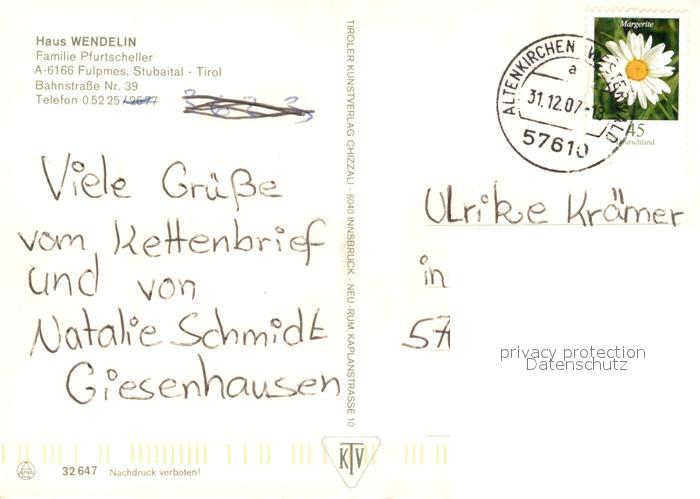 Haus WENDELIN
Familie Pfurtscheller
A-6166 Fulpmes, Stubaital - Tirol
Bahnstraße Nr. 39
Telefon 0 52 25 / 26 77
Viele Grüße
vom Kettenbrief
und von
Natalie Schmidt
Giesenhausen
32 647 Nachdruck verboten!
TIROLER KUNSTVERLAG CHIZZALI · 6040 INNSBRUCK - NEU - RUM, KAPLANSTRASSE 10
KTV
ALTENKIRCHEN WESTERWALD
a
31.12.07-18
57610
Margerite
45
Deutschland
Ulrike Krämer
in
57
privacy protection
Datenschutz